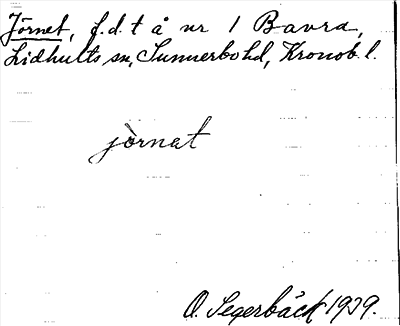 Jörnet, f.d. t å nr 1 Bavra,
Lidhults sn, Sunnerbo hd, Kronob. l.
jòrnat
O. Segerbäck 1939.